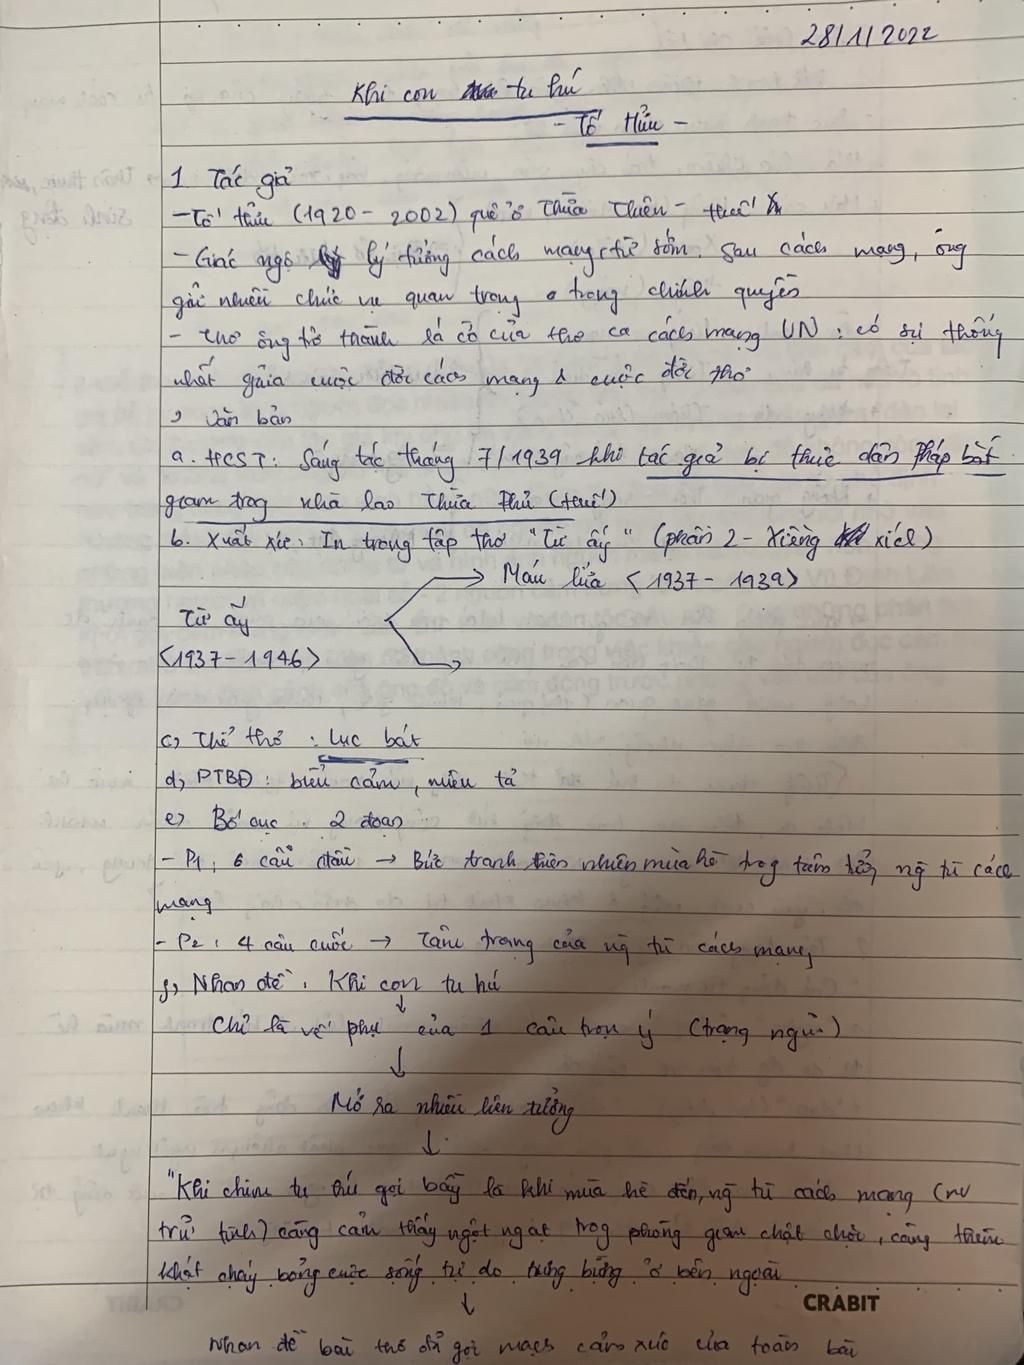 28/1/2022
Khi con tu hú
- Tố Hữu -
1 Tác giả
- Tố Hữu (1920 - 2002) quê ở Thừa Thiên - Huế
- Giác ngộ lý tưởng cách mạng từ sớm. Sau cách mạng, ông
giữ nhiều chức vụ quan trọng trong chính quyền
- Thơ ông trở thành lá cờ của thơ ca cách mạng VN: có sự thống
nhất giữa cuộc đời cách mạng & cuộc đời thơ
2 Văn bản
a. HCST: Sáng tác tháng 7/1939 khi tác giả bị thực dân Pháp bắt
giam trog nhà lao Thừa Phủ (Huế)
b. Xuất xứ: In trong tập thơ "Từ ấy" (phần 2 - Xiềng xích)
Máu lửa <1937 - 1939>
Từ ấy
<1937 - 1946>
c, Thể thơ: Lục bát
d, PTBĐ: biểu cảm, miêu tả
e, Bố cục. 2 đoạn
- P1: 6 câu đầu → Bức tranh thiên nhiên mùa hè trog tâm tưởng ng tù cách
mạng
- P2: 4 câu cuối → Tâm trạng của ng tù cách mạng
g, Nhan đề: Khi con tu hú
Chỉ là vế phụ của 1 câu trọn ý (trạng ngữ)
Mở ra nhiều liên tưởng
"Khi chim tu hú gọi bầy là khi mùa hè đến, ng tù cách mạng (nv
trữ tình) càng cảm thấy ngột ngạt trog phòng giam chật chội, càng thèm
khát cháy bỏng cuộc sống tự do tưng bừng ở bên ngoài
CRABIT
Nhan đề bài thơ đã gợi mạch cảm xúc của toàn bài